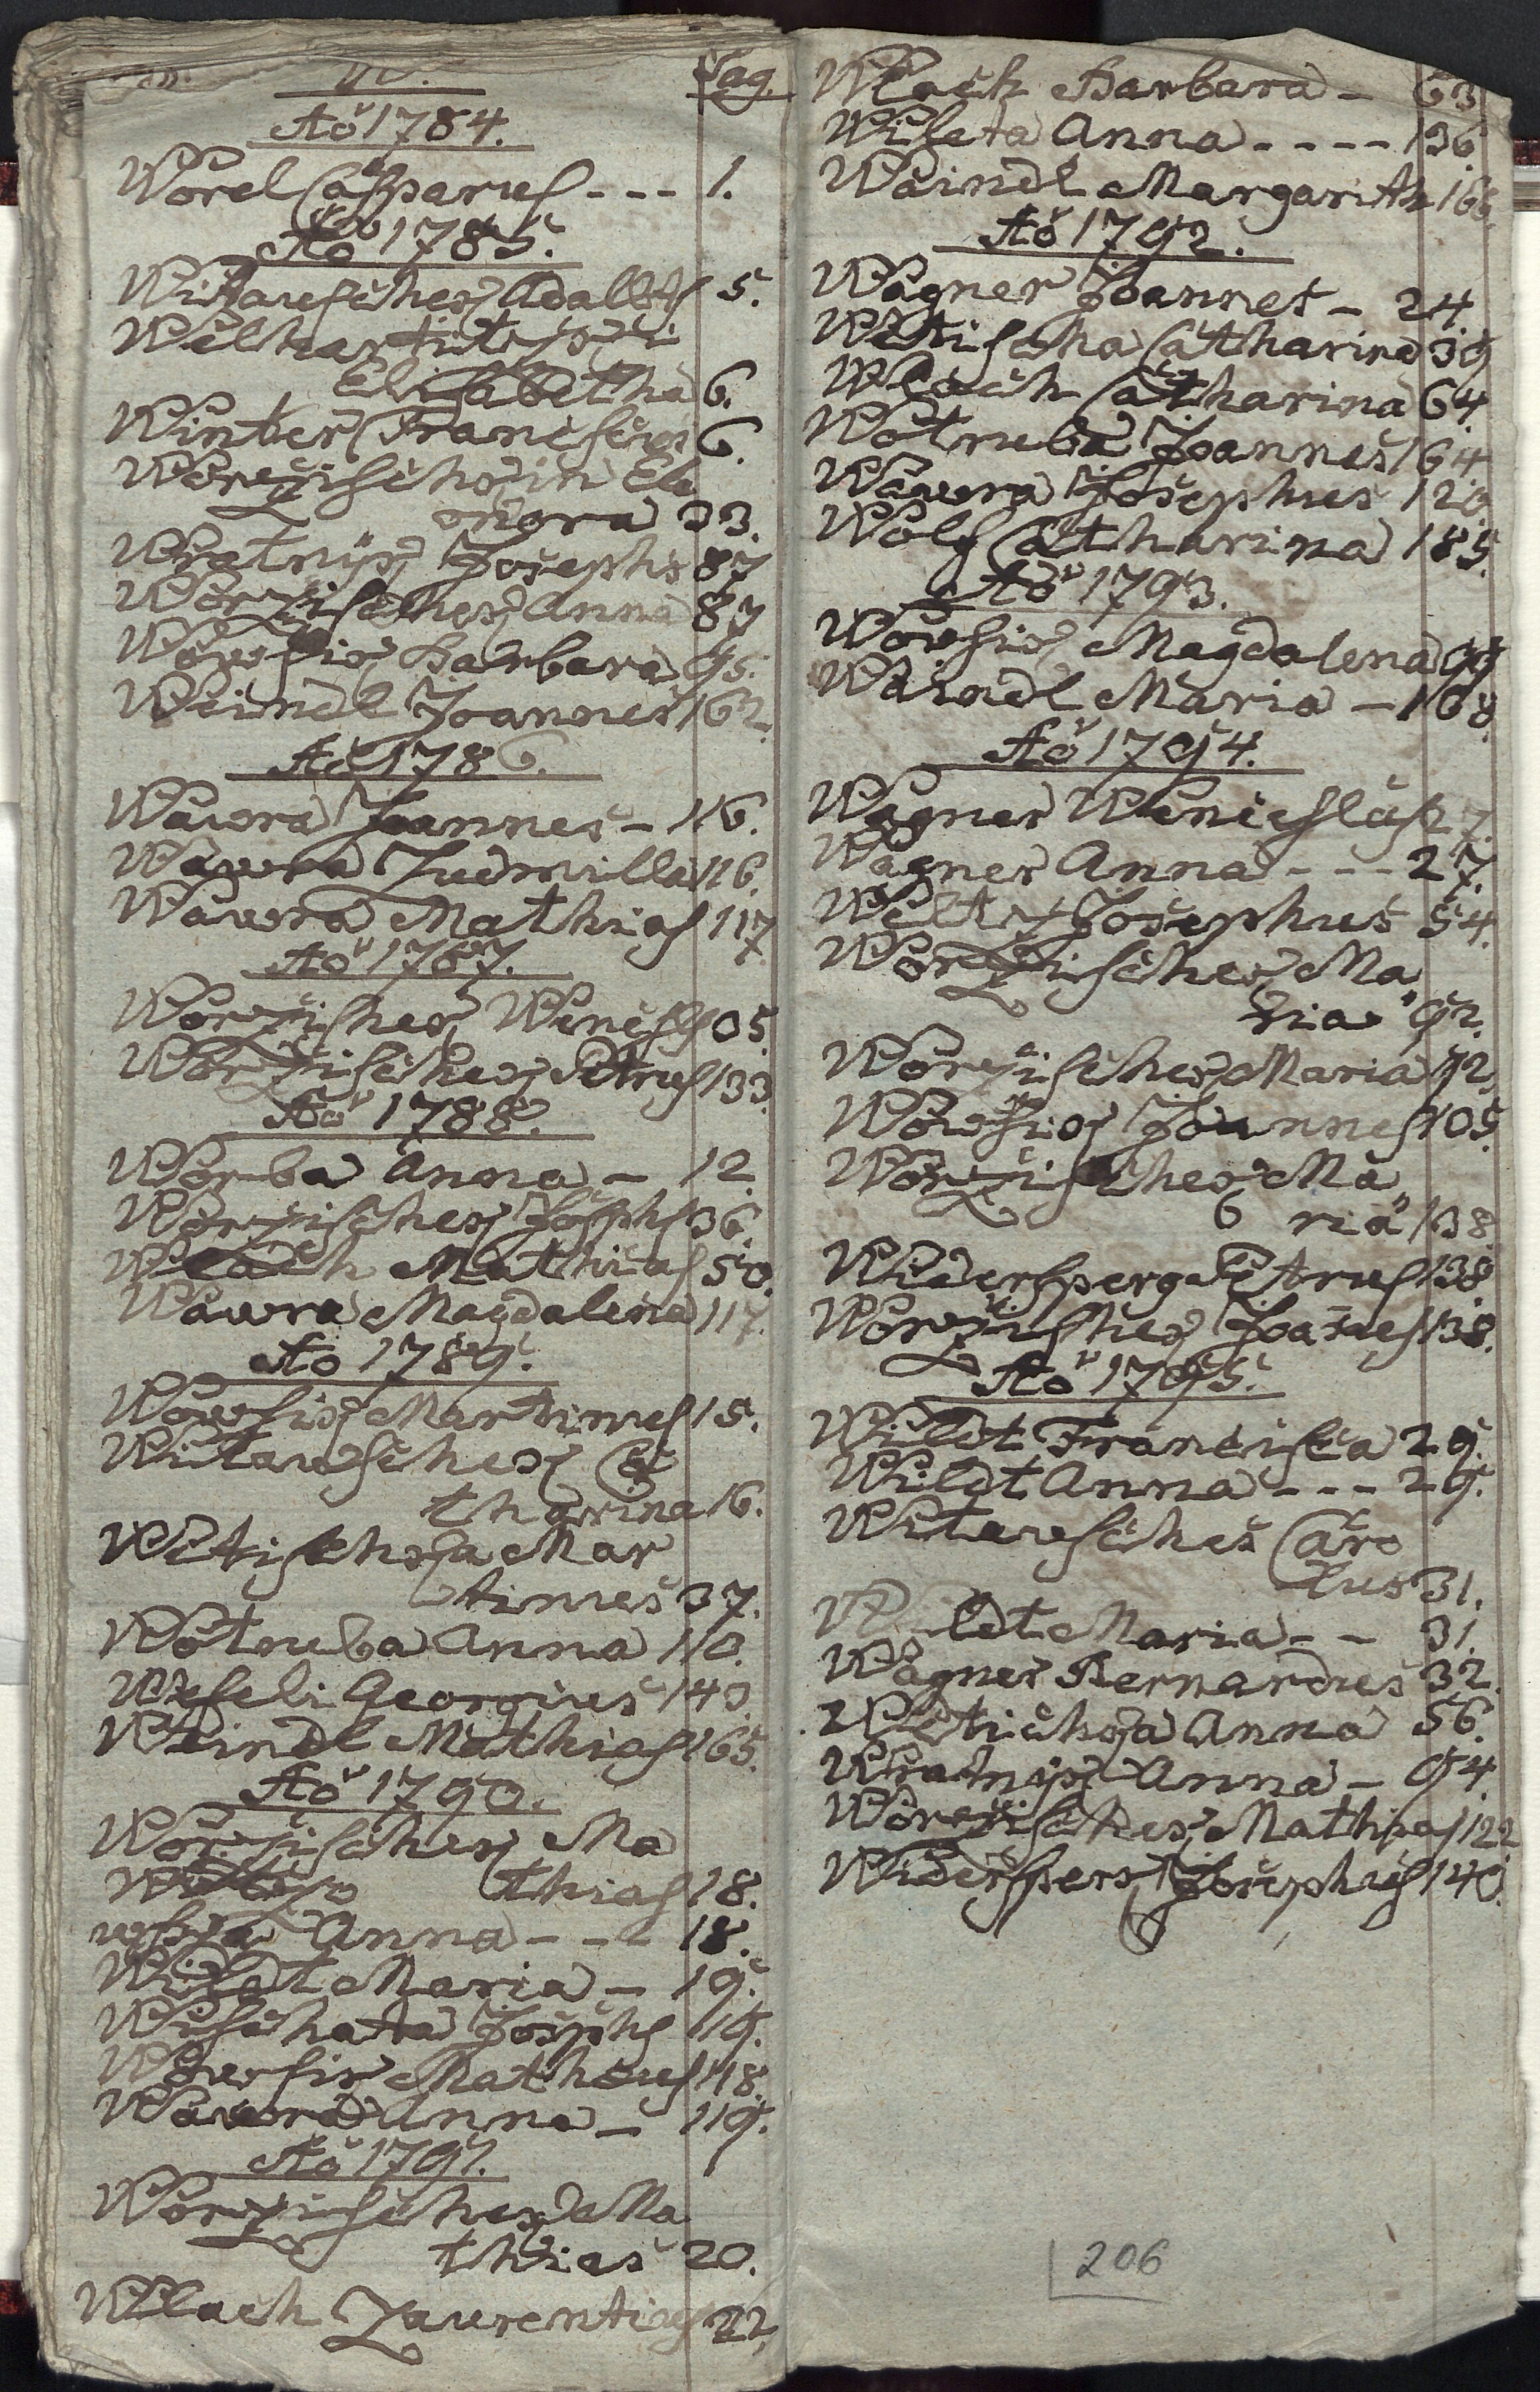 W.
Pag.
Ao 1784.
Worel Casparus --- 1.
Ao 1785.
Adalbt 5.
Elisabetha 6.
Winter Franciscus 6.
Ele
onora 33.
Wratnij Josephs 87
Worzischek Anna 87
Wowsis Barbara 95.
Weindl Joannes 162.
Ao 1786.
Wawra Joannes - 116.
Wawra Ludmilla 116.
Wawra Mathias 117
Ao 1787.
Worzischek Wencesl 105.
Worzischek Petrus 133.
Ao 1788.
Worba Anna - 12.
Worzischek Josephs 36.
Wlach Mathias 50.
Wawra Magdalena 117.
Ao 1789.
Wowsis Martinus 15.
Witauschek Ca
tharina 16.
Mar
tinus 37.
Wotruba Anna 110.
Weseli Georgius 143.
Weindl Mathias 165.
Ao 1790.
Worzischek Ma
thias 18.
Anna --- 18.
Wildt Maria - 19.
Josephs 119.
Wowsis Mathæus 118.
Wawra Anna - 119.
Ao 1791.
Worzischek Ma
thias 20.
Wlach Laurentius 22.
Wlach Barbara - 63
Wileta Anna ---- 136.
Waindl Margarith 166.
Ao 1792.
Wagner Joannes - 24.
Catharina 39
Wlach Catharina 64.
Wotruba Joannes 164
Wawra Josephus 120.
Wolf Catharina 185.
Ao 1793.
Wowsis Magdalena 99
Waindl Maria - 168.
Ao 1794.
Wagner Wenceslaus 27.
Wagner Anna --- 27.
Josephus 54.
Worzischek Ma
ria 92.
Worzischek Maria 92.
Wowsis Joannes 105.
Worzischek Ma
6 ria 138.
Widersperg Petrus 138
Worzischek Joañes 138.
Ao 1795.
Wildt Francisca 29.
Wildt Anna --- 29.
Witauschek Caro
lus 31.
Wildt Maria -- 31.
Wagner Bernardus 32.
Anna 56.
Wratnij Anna - 94.
Worzischek Mathias 122
Widersperg Josephus 140.
206